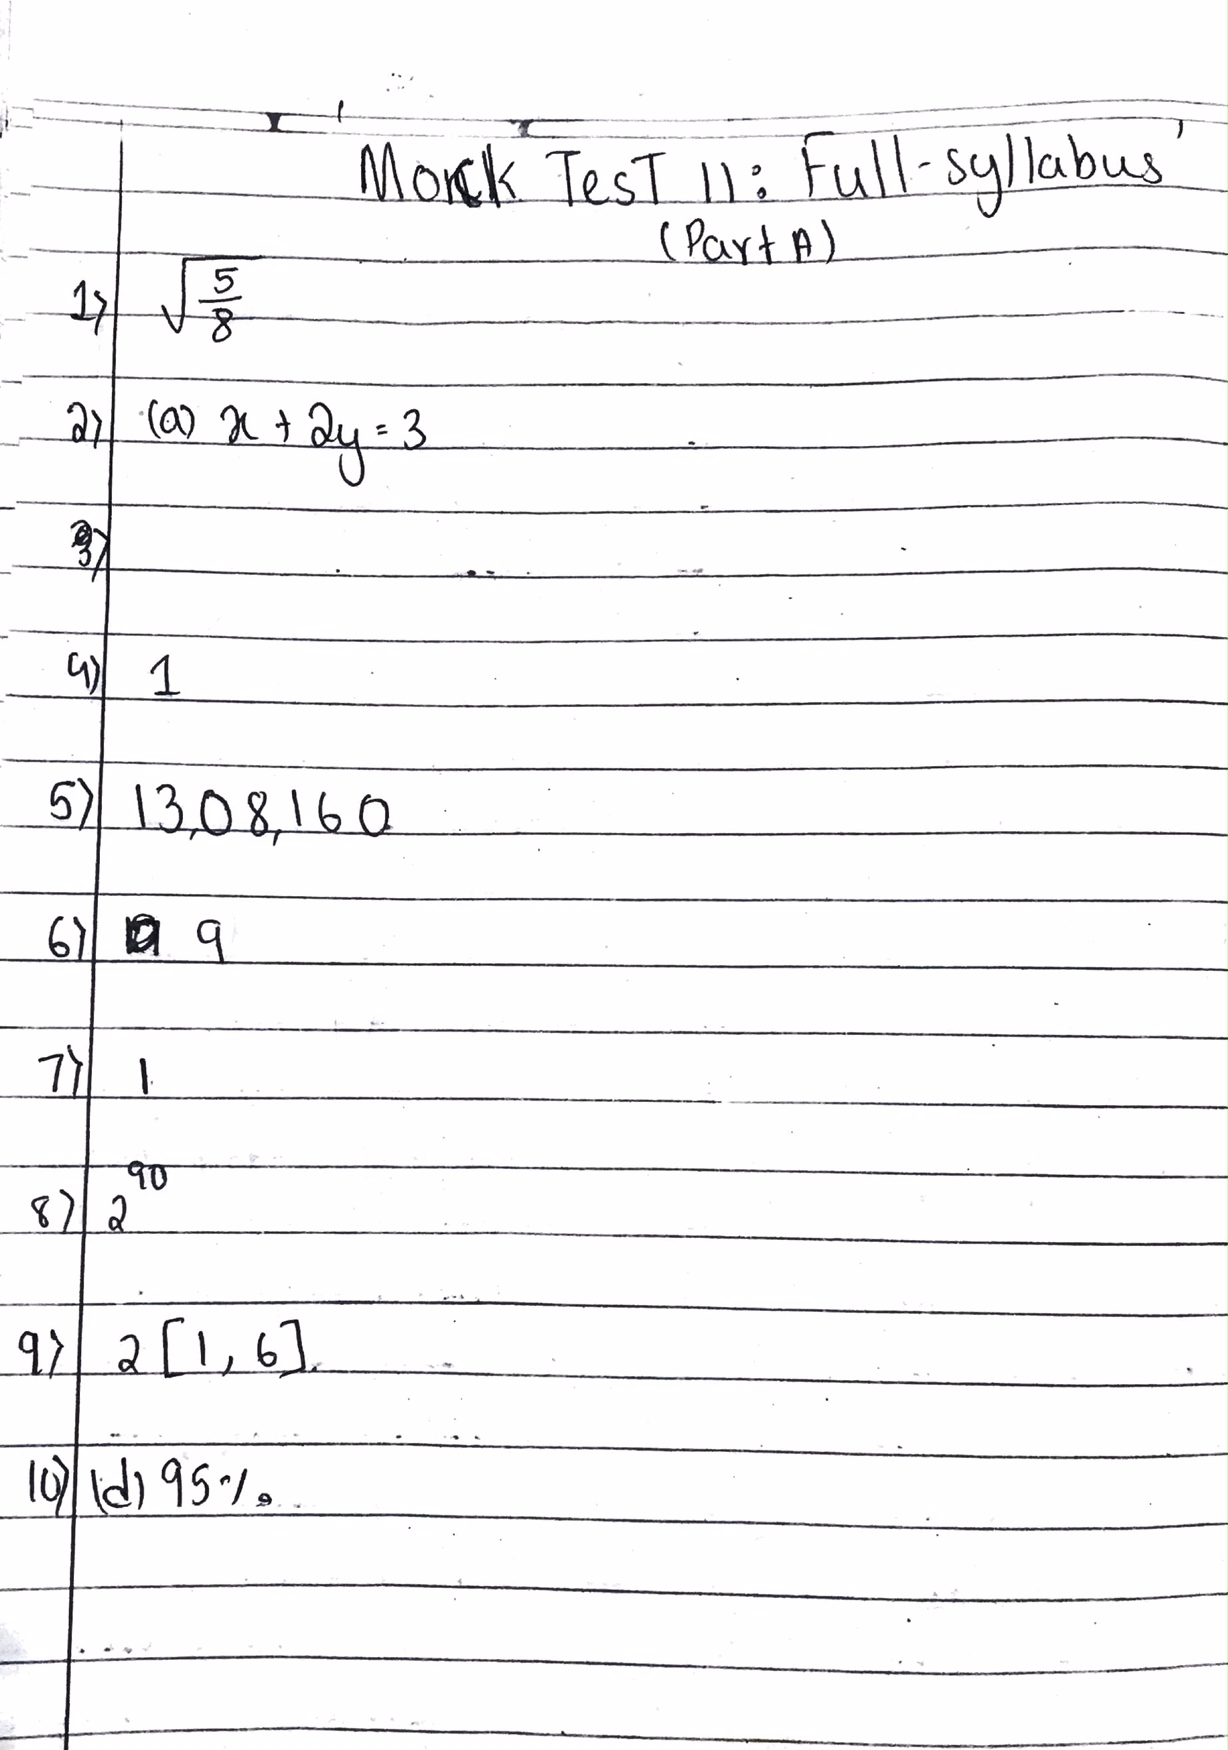 Mock Test 11: Full-syllabus'
(Part A)
1) √5/8
2) (a) x + 2y = 3
3)
4) 1
5) 13,08,160
6) 9
7) 1
8) 2^90
9) 2 [1, 6].
10) (d) 95%.